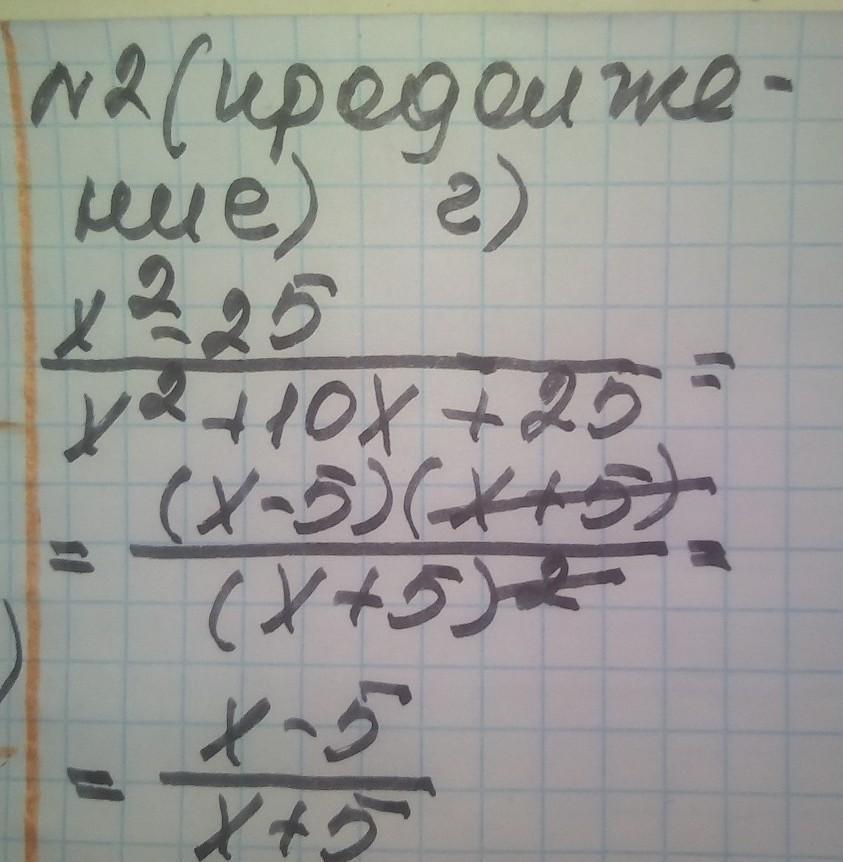 №2 (продолже-
ние) г)
x² - 25
x² + 10x + 25 =
= (x-5)(x+5)
(x+5)² =
= x-5
x+5